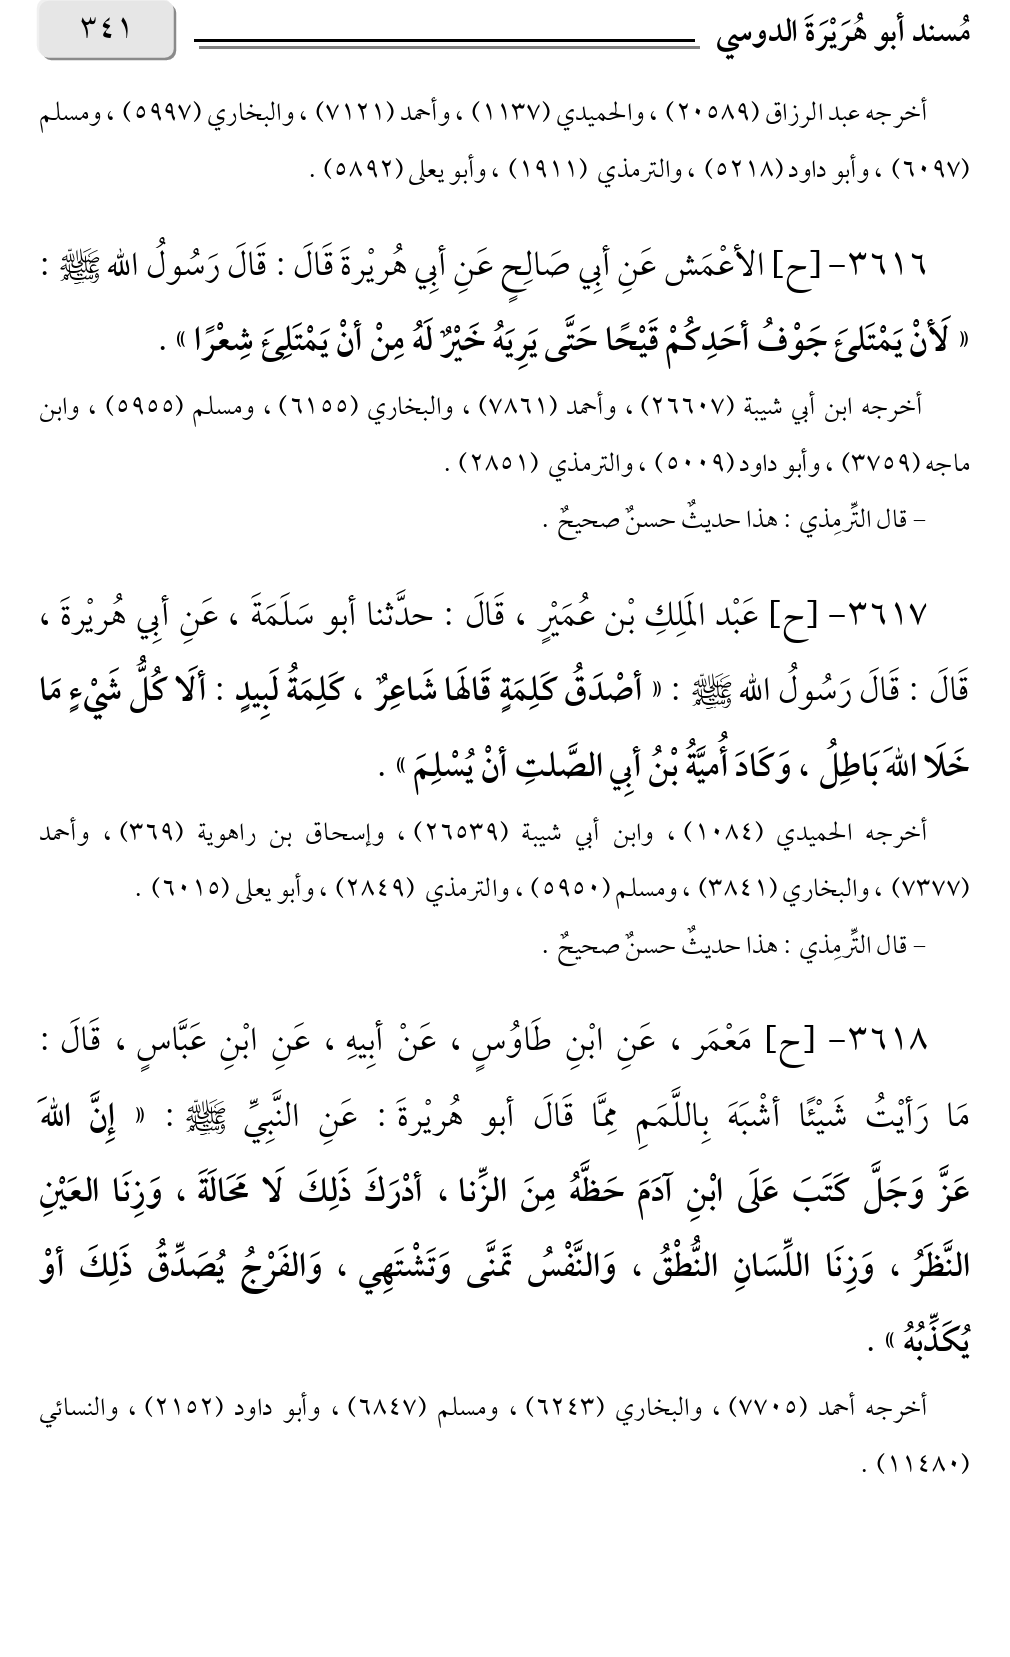 مُسند أبو هُرَيْرَةَ الدوسي ٣٤١
أخرجه عبد الرزاق (٢٠٥٨٩) ، والحميدي (١١٣٧) ، وأحمد (٧١٢١) ، والبخاري (٥٩٩٧) ، ومسلم
(٦٠٩٧) ، وأبو داود (٥٢١٨) ، والترمذي (١٩١١) ، وأبو يعلى (٥٨٩٢) .
٣٦١٦- [ح] الأعْمَش عَنِ أبِي صَالِحٍ عَنِ أبِي هُريْرةَ قَالَ : قَالَ رَسُولُ الله ﷺ :
« لَأنْ يَمْتَلئَ جَوْفُ أحَدِكُمْ قَيْحًا حَتَّى يَرِيَهُ خَيْرٌ لَهُ مِنْ أنْ يَمْتَلِئَ شِعْرًا » .
أخرجه ابن أبي شيبة (٢٦٦٠٧) ، وأحمد (٧٨٦١) ، والبخاري (٦١٥٥) ، ومسلم (٥٩٥٥) ، وابن
ماجه (٣٧٥٩) ، وأبو داود (٥٠٠٩) ، والترمذي (٢٨٥١) .
– قال التِّرمِذي : هذا حديثٌ حسنٌ صحيحٌ .
٣٦١٧- [ح] عَبْد المَلِكِ بْن عُمَيْرٍ ، قَالَ : حدَّثنا أبو سَلَمَةَ ، عَنِ أبِي هُريْرةَ ،
قَالَ : قَالَ رَسُولُ الله ﷺ : « أصْدَقُ كَلِمَةٍ قَالَهَا شَاعِرٌ ، كَلِمَةُ لَبِيدٍ : ألَا كُلُّ شَيْءٍ مَا
خَلَا اللهَ بَاطِلُ ، وَكَادَ أُميَّةُ بْنُ أبِي الصَّلتِ أنْ يُسْلِمَ » .
أخرجه الحميدي (١٠٨٤) ، وابن أبي شيبة (٢٦٥٣٩) ، وإسحاق بن راهوية (٣٦٩) ، وأحمد
(٧٣٧٧) ، والبخاري (٣٨٤١) ، ومسلم (٥٩٥٠) ، والترمذي (٢٨٤٩) ، وأبو يعلى (٦٠١٥) .
– قال التِّرمِذي : هذا حديثٌ حسنٌ صحيحٌ .
٣٦١٨- [ح] مَعْمَر ، عَنِ ابْنِ طَاوُسٍ ، عَنْ أبِيهِ ، عَنِ ابْنِ عَبَّاسٍ ، قَالَ :
مَا رَأيْتُ شَيْئًا أشْبَهَ بِاللَّمَمِ مِمَّا قَالَ أبو هُريْرةَ : عَنِ النَّبِيِّ ﷺ : « إِنَّ اللهَ
عَزَّ وَجَلَّ كَتَبَ عَلَى ابْنِ آدَمَ حَظَّهُ مِنَ الزِّنا ، أدْرَكَ ذَلِكَ لَا مَحَالَةَ ، وَزِنَا العَيْنِ
النَّظَرُ ، وَزِنَا اللِّسَانِ النُّطْقُ ، وَالنَّفْسُ تَمنَّى وَتَشْتَهِي ، وَالفَرْجُ يُصَدِّقُ ذَلِكَ أوْ
يُكَذِّبُهُ » .
أخرجه أحمد (٧٧٠٥) ، والبخاري (٦٢٤٣) ، ومسلم (٦٨٤٧) ، وأبو داود (٢١٥٢) ، والنسائي
(١١٤٨٠) .